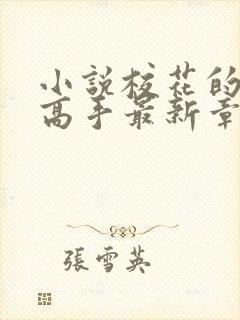 小說校花的
高手最新章
張雪英